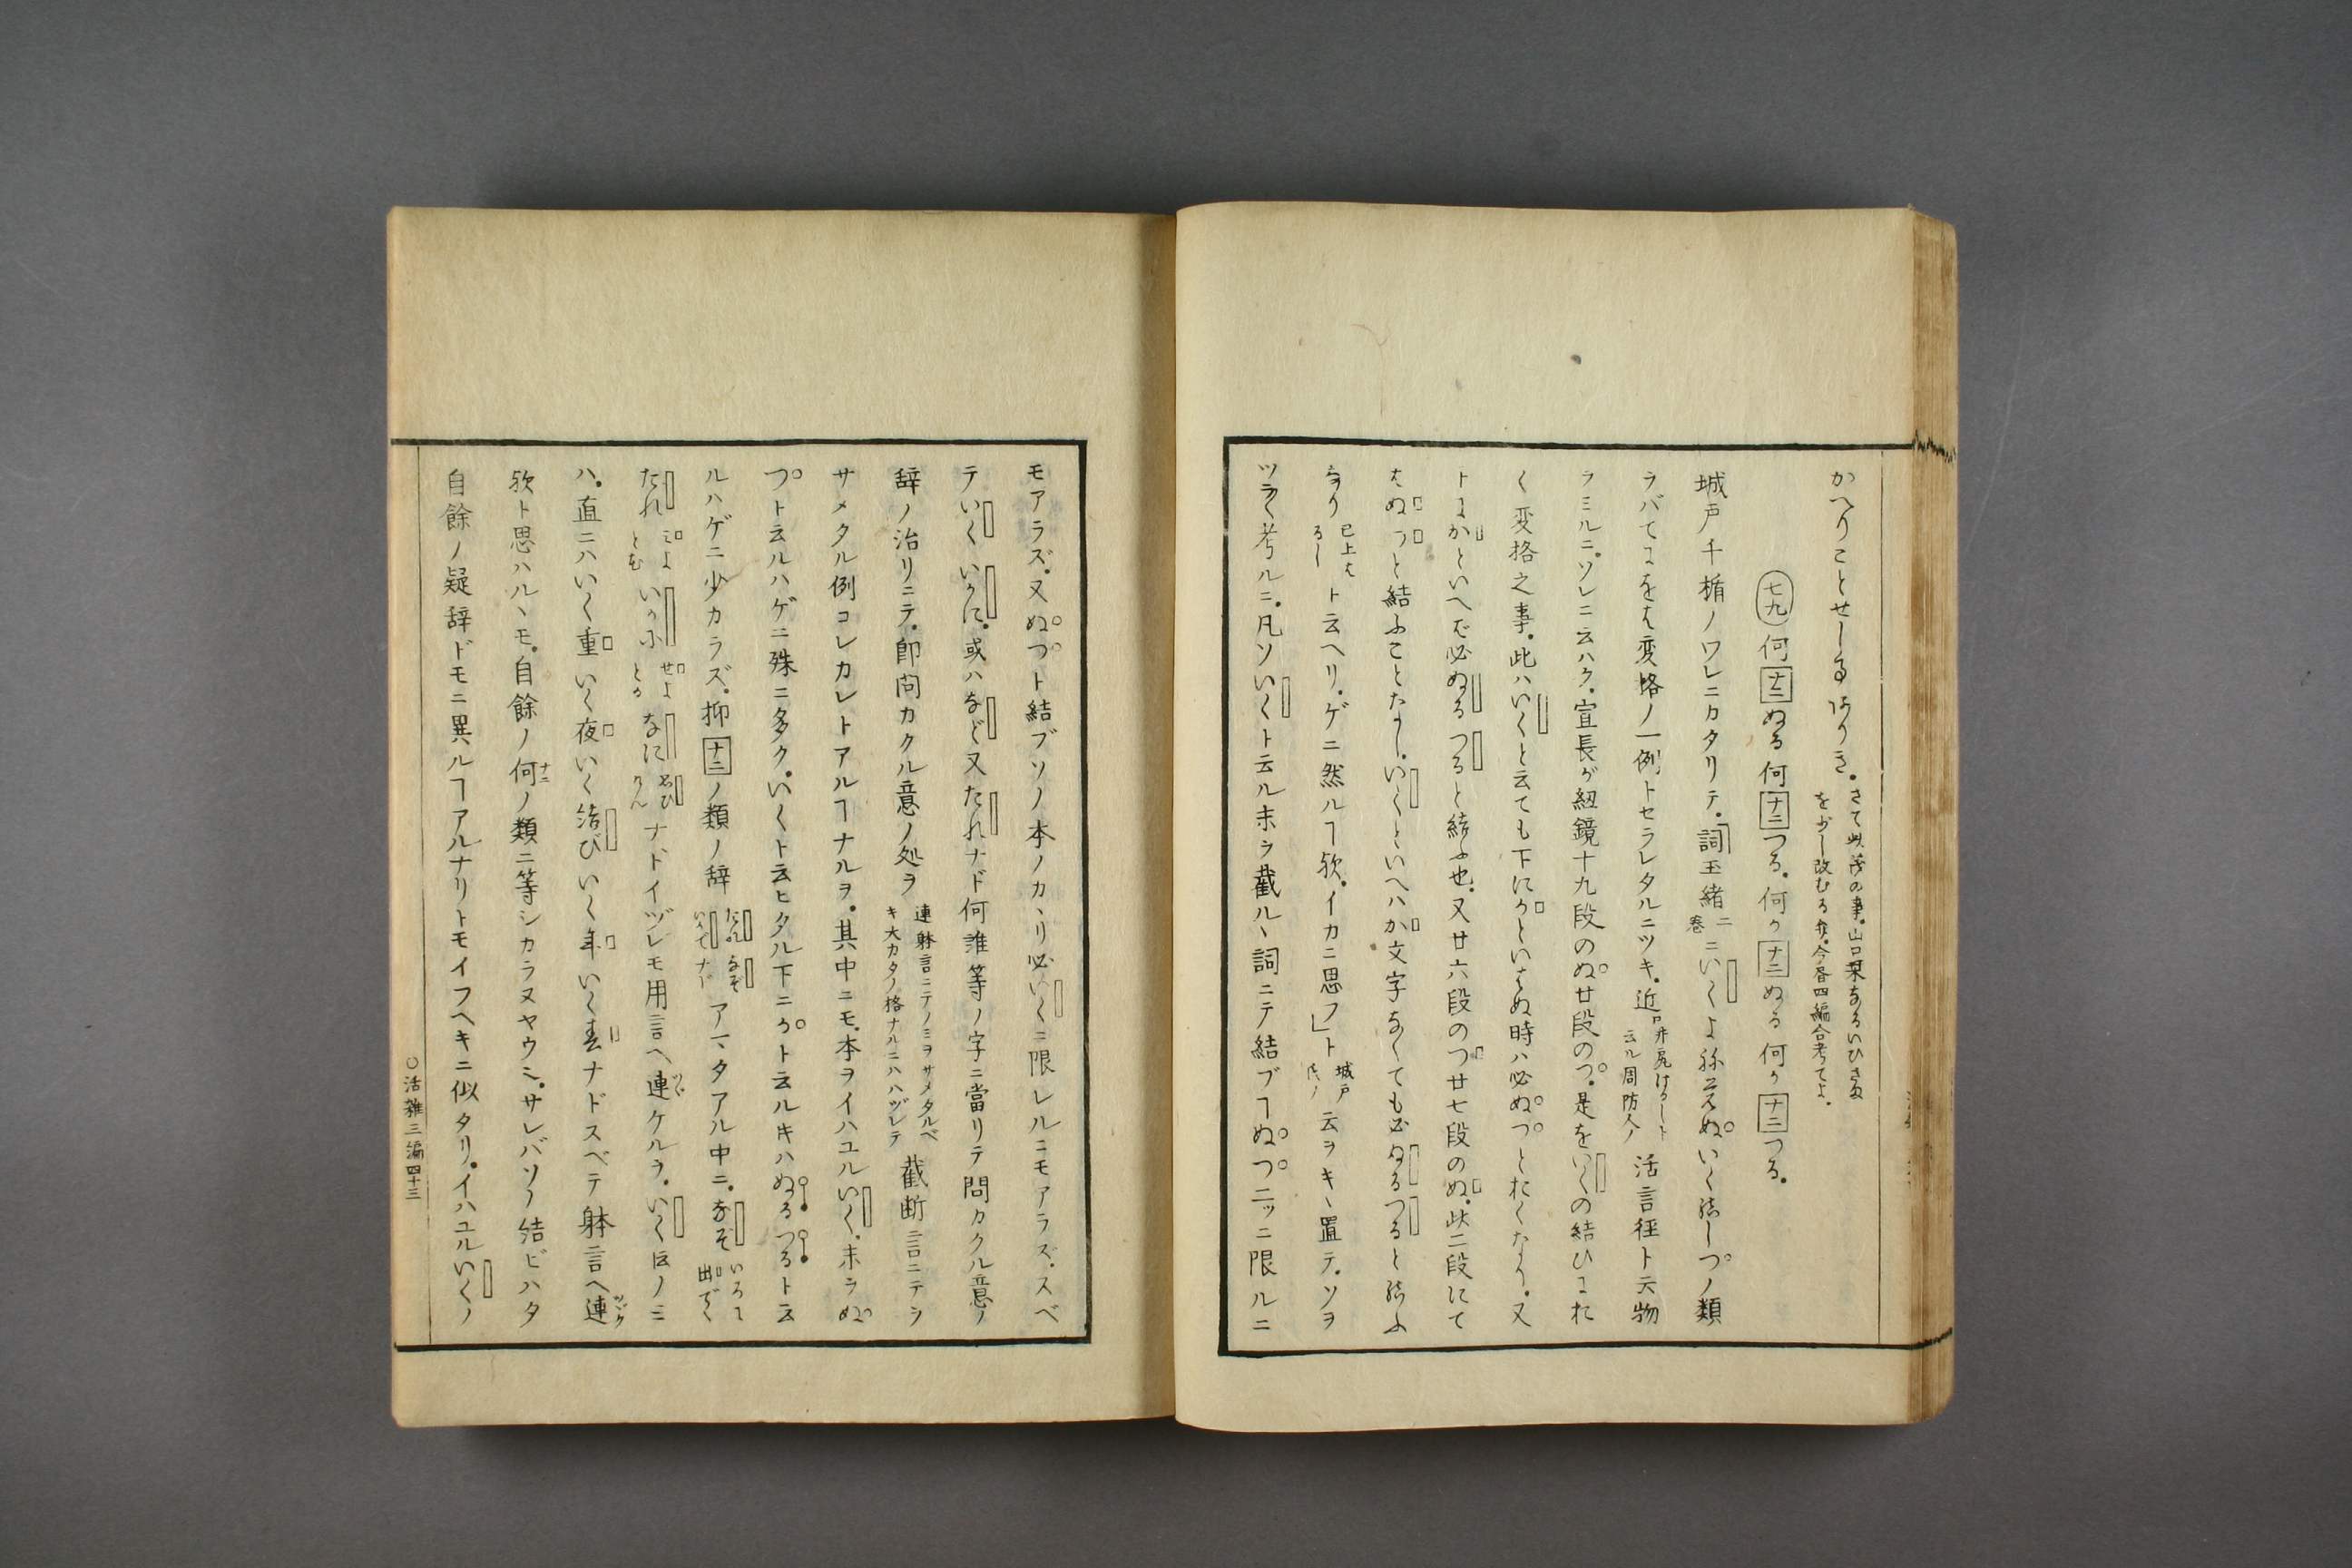 かへりことせしるありき。さて此蒡の事。山口栞なるいひさま
を少し改むる有。今啓四編合考てよ。
七九 何ナニぬる何ナニつる。何かナニぬる何かナニつる。
城戸千楯ノワレニカタリテ。詞玉緒二巻ニいくよ祢ざめぬいく結しつノ類
ラバてにをは変格ノ一例トセラレタルニツキ。近口井尻けるしト云ル周防人ノ活言径ト云物
ヲミルニ。ソレニ云ハク。宣長が紐鏡十九段のぬ廿段のつ。是をいくの結ひにれ
く変格之事。此ハいくと云ても下にかといはぬ時ハ必ぬつとおくなり。又
トにかといへば必ぬるつると結ふ也。又廿六段のつ廿七段のぬ。此二段にて
はぬつと結ふことなし。いくといへハか文字なくても必ぬるつると結ふ
なり已上はるしト云ヘリ。ゲニ然ルヿ歟。イカニ思フ」ト城戸氏ノ云ヲキヽ置テ。ソヲ
ツラく考ルニ。凡ソいくト云ル末ヲ截ルヽ詞ニテ結ブヿぬつニッニ限ルニ
モアラズ。又ぬつト結ブソノ本ノカヽリ必いくニ限レルニモアラズ。スベ
テいくいかに。或ハなど又たれナド何誰等ノ字ニ當リテ問カクル意ノ
辞ノ治リニテ。即問カクル意ノ処ヲ連躰言ニテノミヲサメタルベキ大カタノ格ナルニハハヅレテ截断言ニテヲ
サメタル例コレカレトアルヿナルヲ。其中ニモ。本ヲイハユルいく。末ヲぬ
つト云ルハゲニ殊ニ多ク。いくト云ヒタル下ニかト云ルキハぬるつるト云
ルハゲニ少カラズ。抑ナニノ類ノ辞たれなぞいかでナドアマタアル中ニ。なぞいろに出でく
たれによとむいかにせよとかなにおひけんナドイヅレモ用言ヘ連ケルヲ。いく匠ノミ
ハ。直ニハいく重いく夜いく結びいく年いく春ナドスベテ躰言ヘ連ツヾク
歟ト思ハルヽモ。自餘ノ何ナニノ類ニ等シカラヌヤウニ。サレバソノ結ビハタ
自餘ノ疑辞ドモニ異ルヿアルナリトモイフヘキニ似タリ。イハユルいくノ
○活雑三編四十三